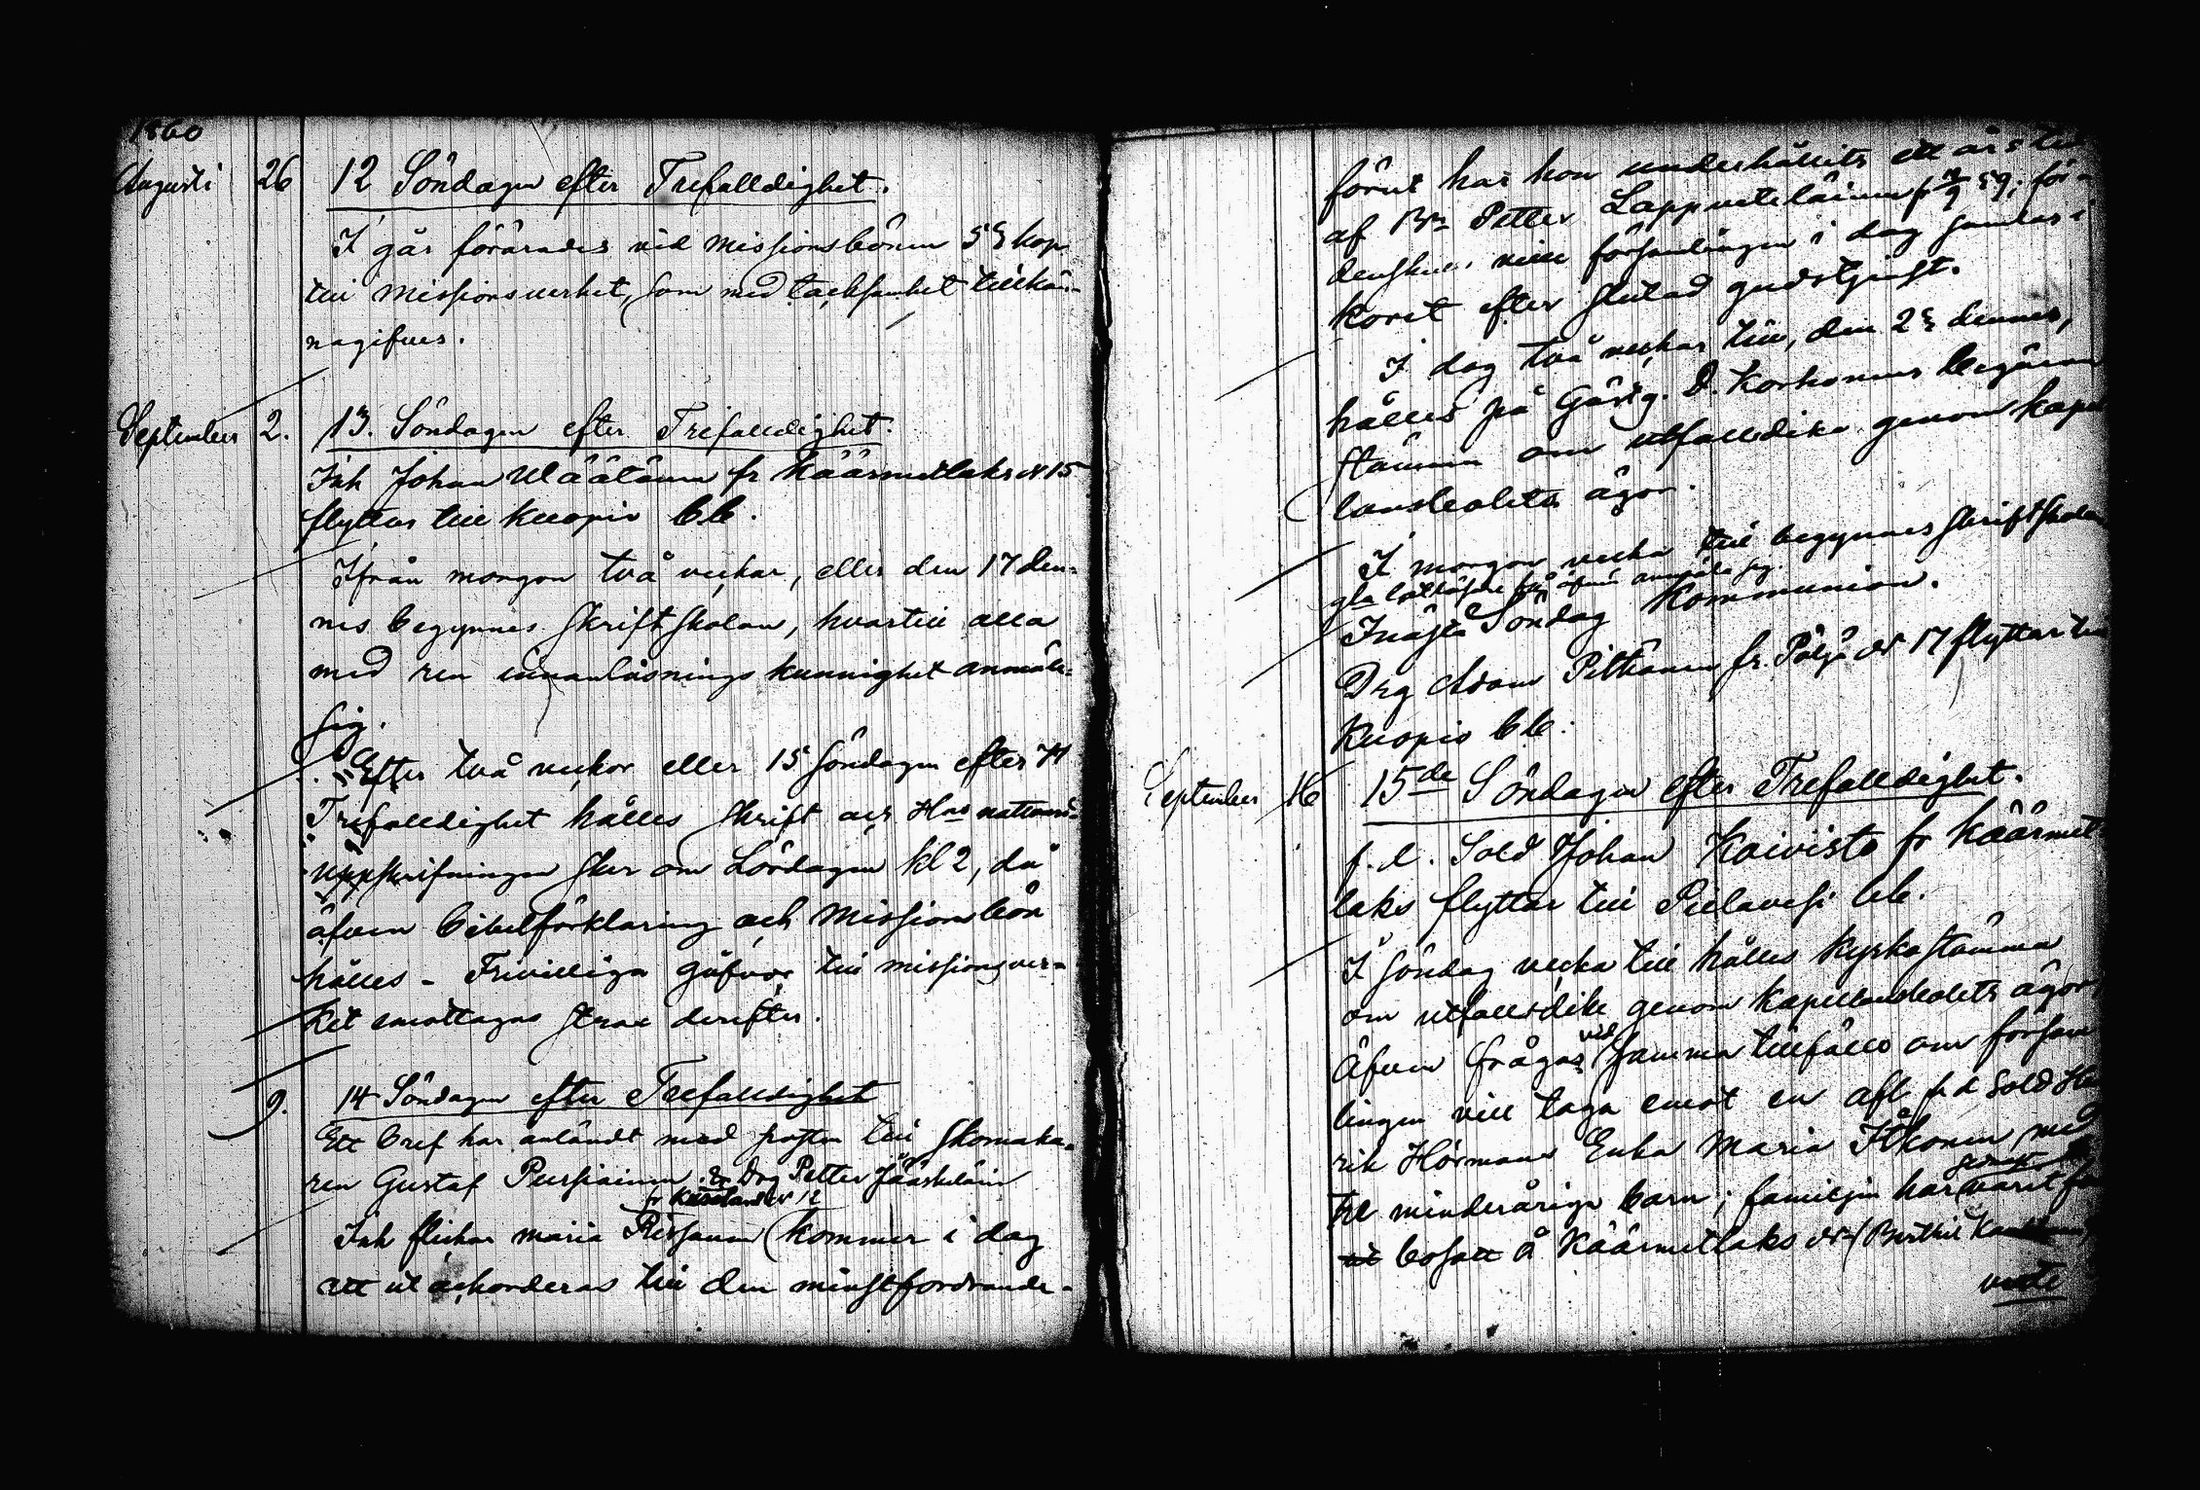 1860
Augusti 26 12 Söndagen efter Trefalldighet.
I går förärades vid missionsbönen 58 kop
till missionsverket, som med tacksamhet tillkän-
nagifves.
September 2. 13. Söndagen efter Trefalldighet.
Inh Johan Wäätänen fr Käärmetlaks N 15
flyttar till Kuopio
Ifrån morgon två veckor, eller den 17 den-
nes begynnes skriftskolan, hvartill alla
med ren innanläsnings kunnighet anmäle
sig.
Efter två veckor eller 15 Söndagen efter
Trefalldighet hålles skrift och Hns nattvard
uppskrifningen sker om Lördagen kl 2, då
äfven bibelförklaring och missionsbön
hålles - Frivilliga gåfvor till missionsver-
ket emottagas strax derefter.
9. 14 Söndagen efter Trefalldighet
Ett bref har anländt med posten till skomaka-
ren Gustaf Pursiainen & Drg Petter Jääskeläin
N 12
Inh flickan Maria Rissanen kommer i dag
att utackorderas till den minstfordrande-
förut har hon underhållits ett års tid
af Bn Petter Lappveteläinen fr 59; för-
denskull ville församlingen i dag samlas i
koret efter slutad gudstjenst.
I dag två veckor till, den 23 dennes,
hålles på Gästg. D. Korhonens begäran
stämma om utfallsdike genom kapel
lansbolets ägor.
I morgon vecka till begynnes skriftskolan
anmäla sig.
Inästa Söndag Kommunion.
Drg Adam Pitkänen fr. Pöljä N 17 flyttar till
Kuopio
September 16 15de Söndagen efter Trefalldighet.
f. d. Sold Johan Koivisto fr Käärmet
laks flyttar till Pielavesi
I söndag vecka till hålles kyrkostämma
om utfallsdike genom kapellansbolets ägor,
vid
Äfven frågas samma tillfälle om försam
lingen vill taga emot en afl f d Sold Hen
rik Hörmans Enka Maria Itkonen med
tre minderåriga barn; familjen har varit
bosatt å Käärmetlaks